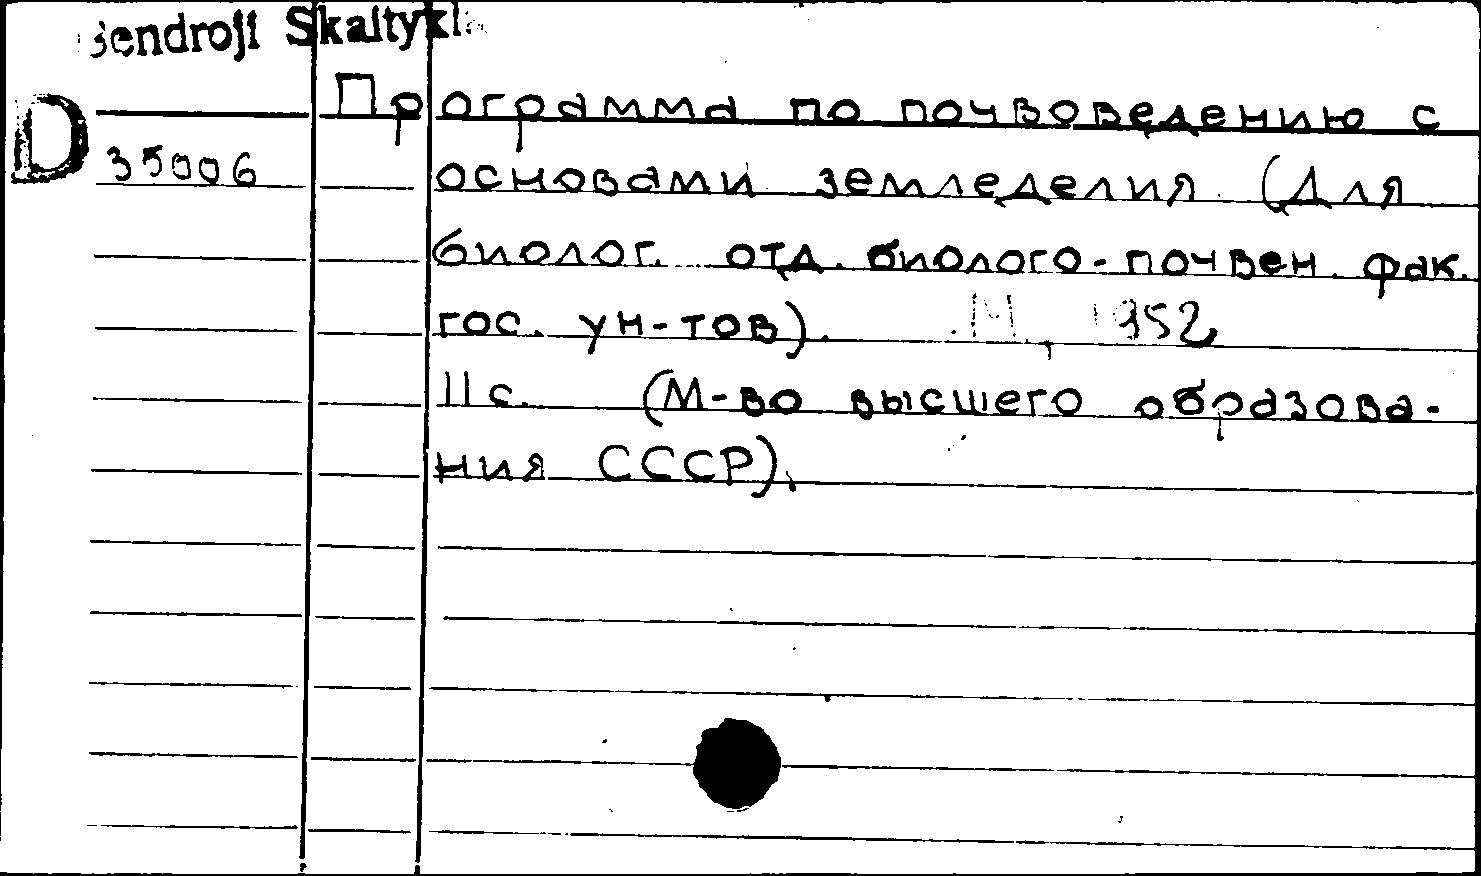 Bendroji Skaitykla
Программа по почвоведению с
D 35006 основами земледелия (Для
биолог. отд. биолого-почвен. фак.
гос. ун-тов). М., 1952
11 с. (М-во высшего образова-
ния СССР).